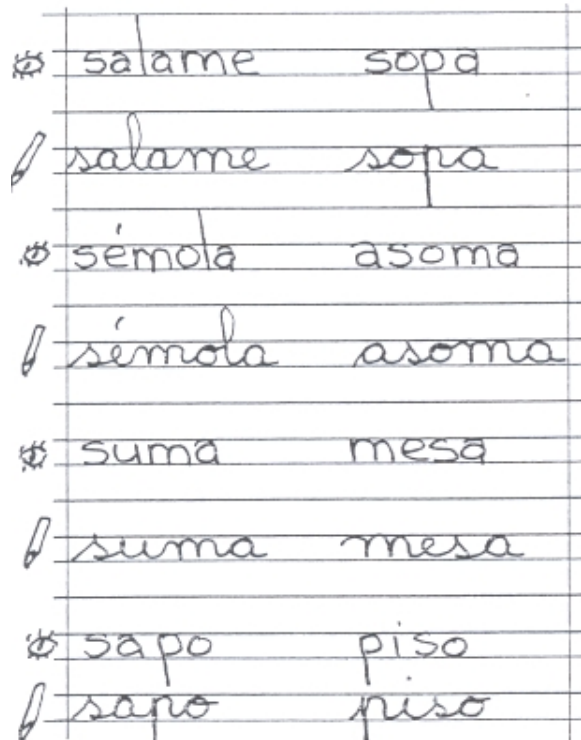 salame sopa
salame sopa
sémola asoma
sémola asoma
suma mesa
suma mesa
sapo piso
sapo piso